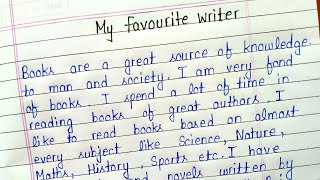 My favourite writer
Books are a great source of knowledge
to man and society. I am very fond
of books. I spend a lot of time in
reading books of great authors. I
like to read books based on almost
every subject like Science, Nature,
Maths, History, Sports etc. I have
and novels written by